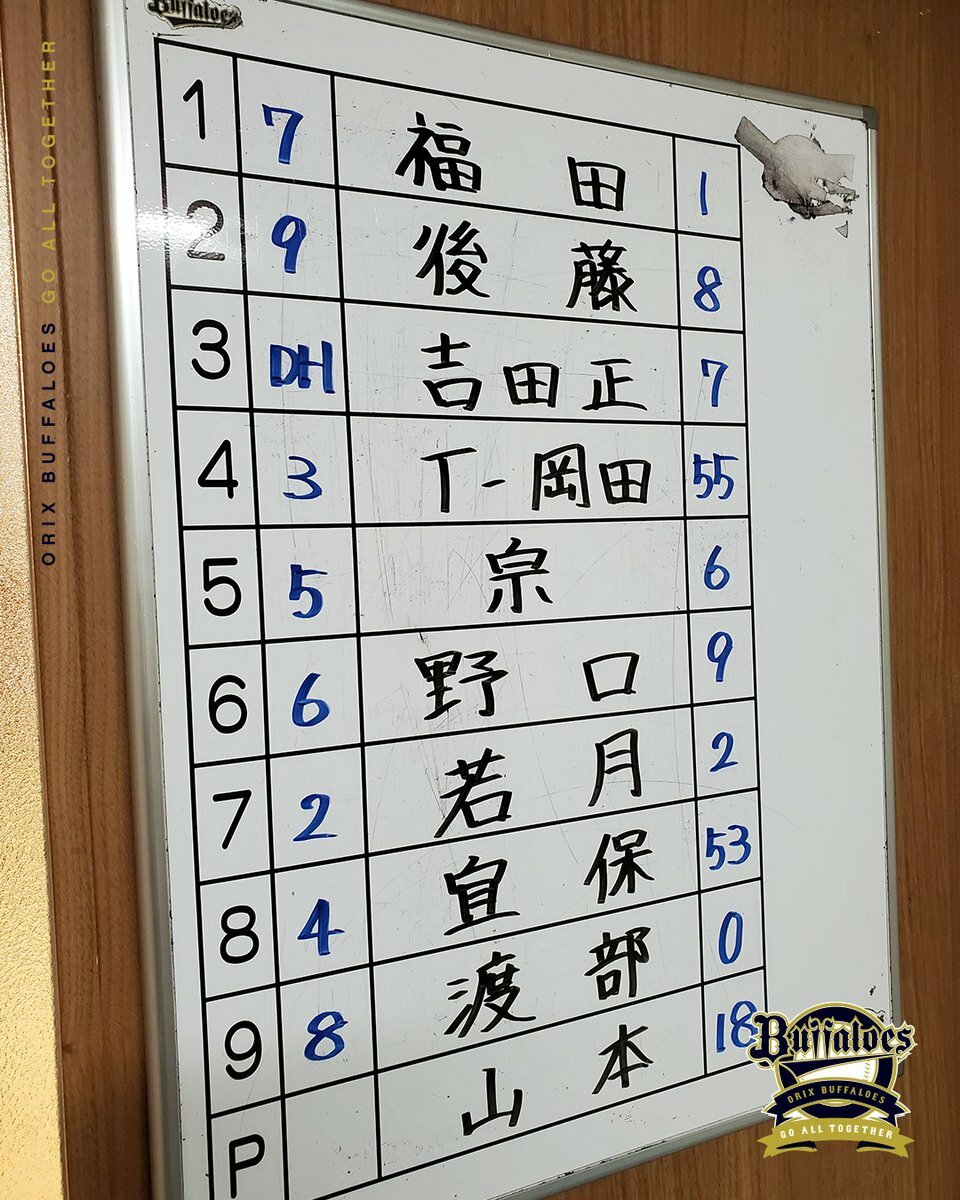 Buffaloes
1 7 福田 1
2 9 後藤 8
3 DH 吉田正 7
4 3 T-岡田 55
5 5 宗 6
6 6 野口 9
7 2 若月 2
8 4 宜保 53
9 8 渡部 0
P 山本 18
ORIX BUFFALOES GO ALL TOGETHER
Buffaloes
ORIX BUFFALOES
GO ALL TOGETHER